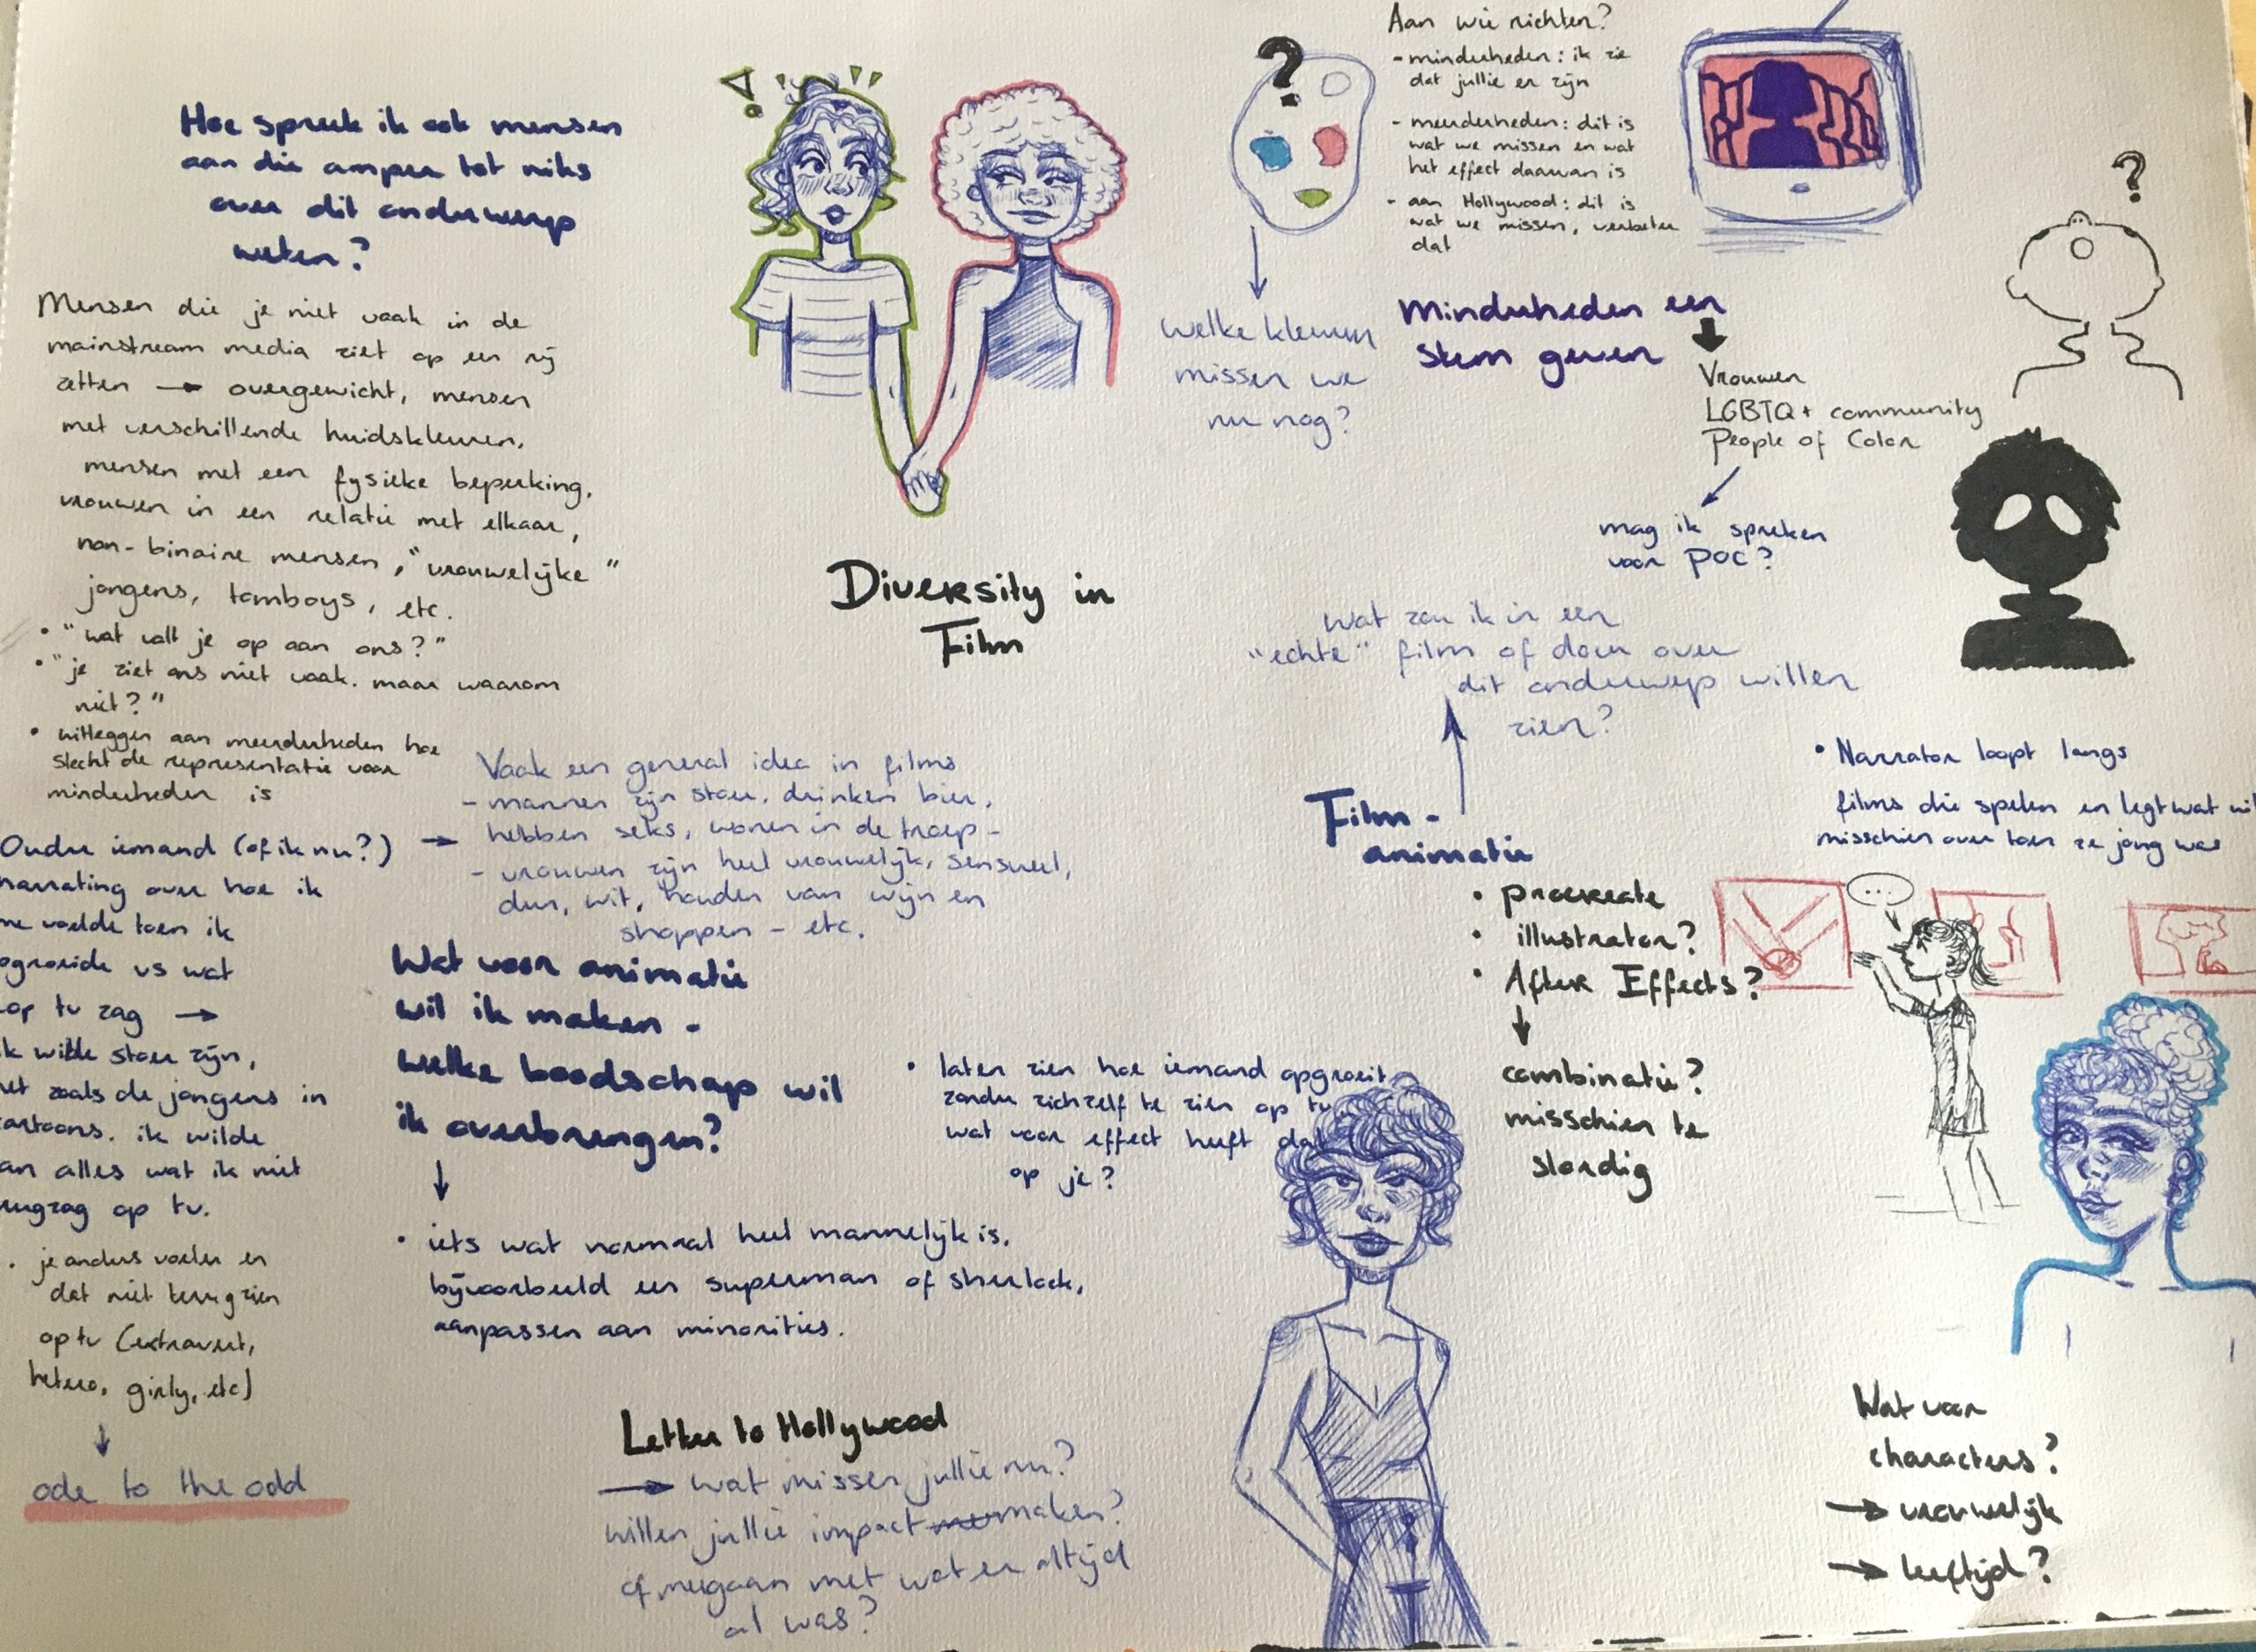 Hoe spreek ik ook mensen
aan die amper tot niks
over dit onderwerp
weten?
Mensen die je niet vaak in de
mainstream media ziet op een rij
zetten → overgewicht, mensen
met verschillende huidskleuren,
mensen met een fysieke beperking,
vrouwen in een relatie met elkaar,
non-binaire mensen, "vrouwelijke"
jongens, tomboys, etc.
• "wat valt je op aan ons?"
• "je ziet ons niet vaak. maar waarom
niet?"
• uitleggen aan meerderheden hoe
slecht de representatie voor
minderheden is
Oudere iemand (of ik nu?)
narrating over hoe ik
me voelde toen ik
opgroeide vs wat
op tv zag →
ik wilde stoer zijn,
net zoals de jongens in
cartoons. ik wilde
an alles wat ik niet
terugzag op tv.
• je anders voelen en
dat niet terugzien
op tv (extravert,
hetero, girly, etc)
↓
ode to the odd
Diversity in
Film
→ Vaak een general idea in films
- mannen zijn stoer, drinken bier,
hebben seks, wonen in de troep -
- vrouwen zijn heel vrouwelijk, sensueel,
dun, wit, houden van wijn en
shoppen - etc.
Wat voor animatie
wil ik maken -
welke boodschap wil
ik overbrengen?
↓
• iets wat normaal heel mannelijk is,
bijvoorbeeld een superman of sherlock,
aanpassen aan minorities.
• laten zien hoe iemand opgroeit
zonder zichzelf te zien op tv
wat voor effect heeft dat
op je?
Letter to Hollywood
→ wat missen jullie nu?
willen jullie impact maken?
of meegaan met wat er altijd
al was?
?
↓
welke kleuren
missen we
nu nog?
Aan wie richten?
- minderheden: ik zie
dat jullie er zijn
- meerderheden: dit is
wat we missen en wat
het effect daarvan is
- aan Hollywood: dit is
wat we missen, verbeter
dat
Minderheden een
stem geven
↓
Vrouwen
LGBTQ+ community
People of Color
mag ik spreken
voor POC?
?
Wat zou ik in een
"echte" film of docu over
dit onderwerp willen
zien?
Film -
animatie
• procreate
• illustrator?
• After Effects?
↓
combinatie?
misschien te
slordig
• Narrator loopt langs
films die spelen en legt wat uit
misschien over toen ze jong was
...
Wat voor
characters?
→ vrouwelijk
→ leeftijd?